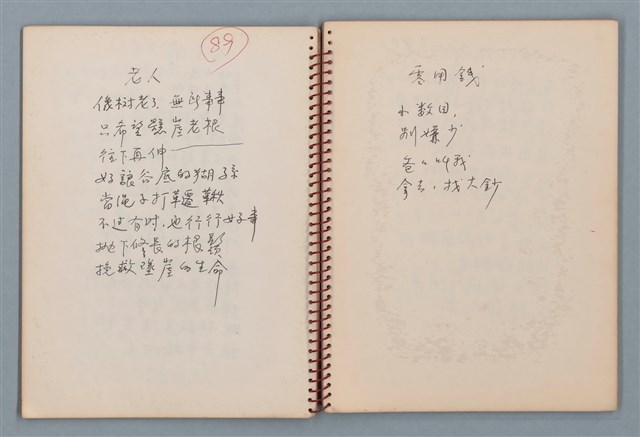 89
老人
像树老了，無所事事
只希望懸崖老根
往下再伸——
好讓谷底的猢孫
當绳子打鞦韆
不过有时，也行行好事
抛下修長的根鬚
挽救墜崖的生命
零用錢
小数目，
别嫌少
爸爸叫我
拿去，找大鈔